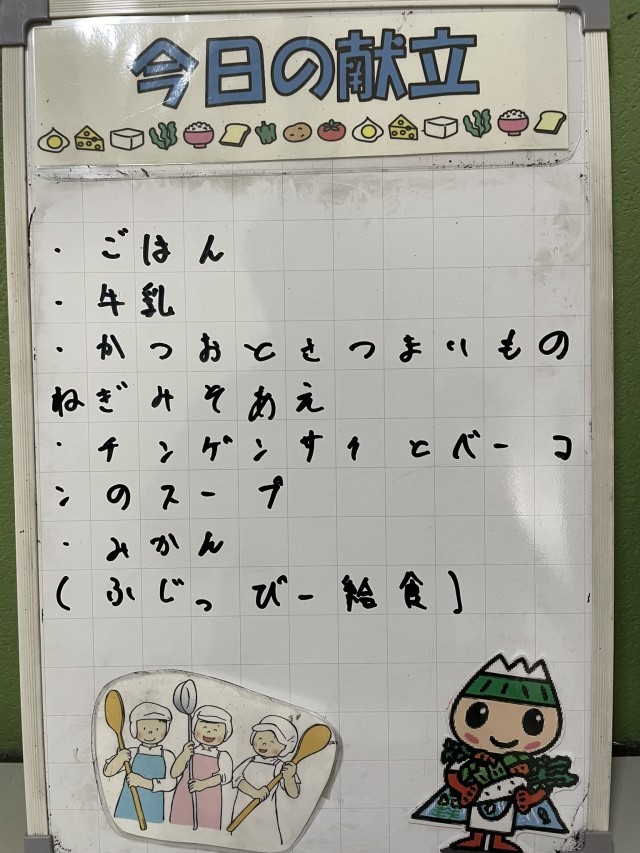 今日の献立
・ごはん
・牛乳
・かつおとさつまいもの
ねぎみそあえ
・チンゲンサイとベーコ
ンのスープ
・みかん
(ふじっぴー給食)